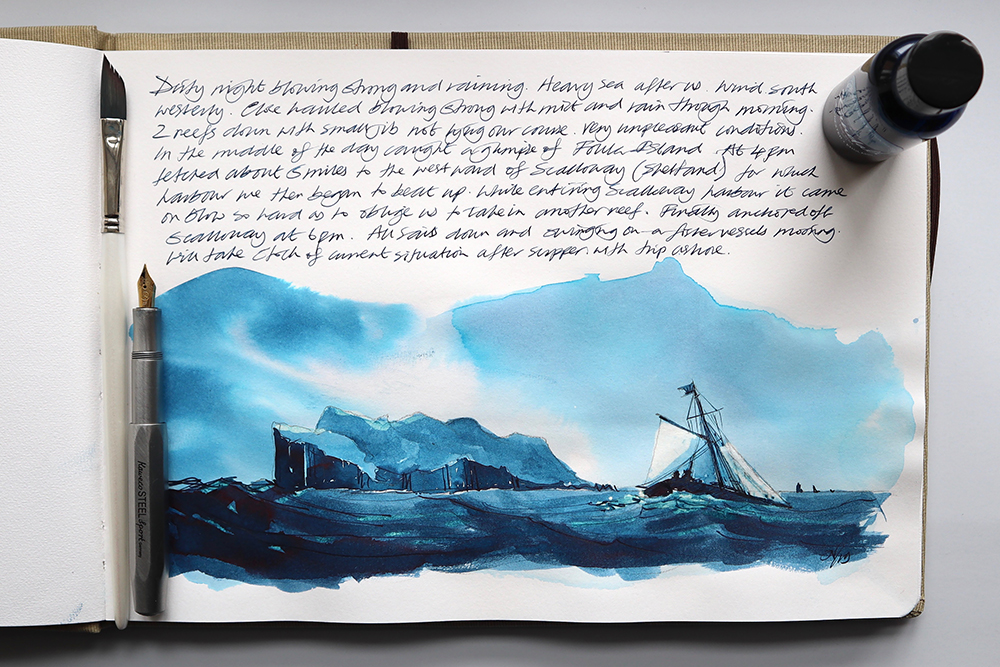 Dirty night blowing strong and raining. Heavy sea after us. Wind south
westerly. Close hauled blowing strong with mist and rain through morning.
2 reefs down with small jib not lying our course. Very unpleasant conditions.
In the middle of the day caught a glimpse of Foula Island. At 4pm
fetched about 5 miles to the westward of Scalloway (Shetland) for which
harbour we then began to beat up. While entiring Scalloway harbour it came
on blow so hard as to oblige us to take in another reef. Finally anchored off
Scalloway at 6pm. All sails down and swinging on a fisher vessels mooring.
Will take of current situation after supper with trip ashore.
Kaweco STEEL Sport